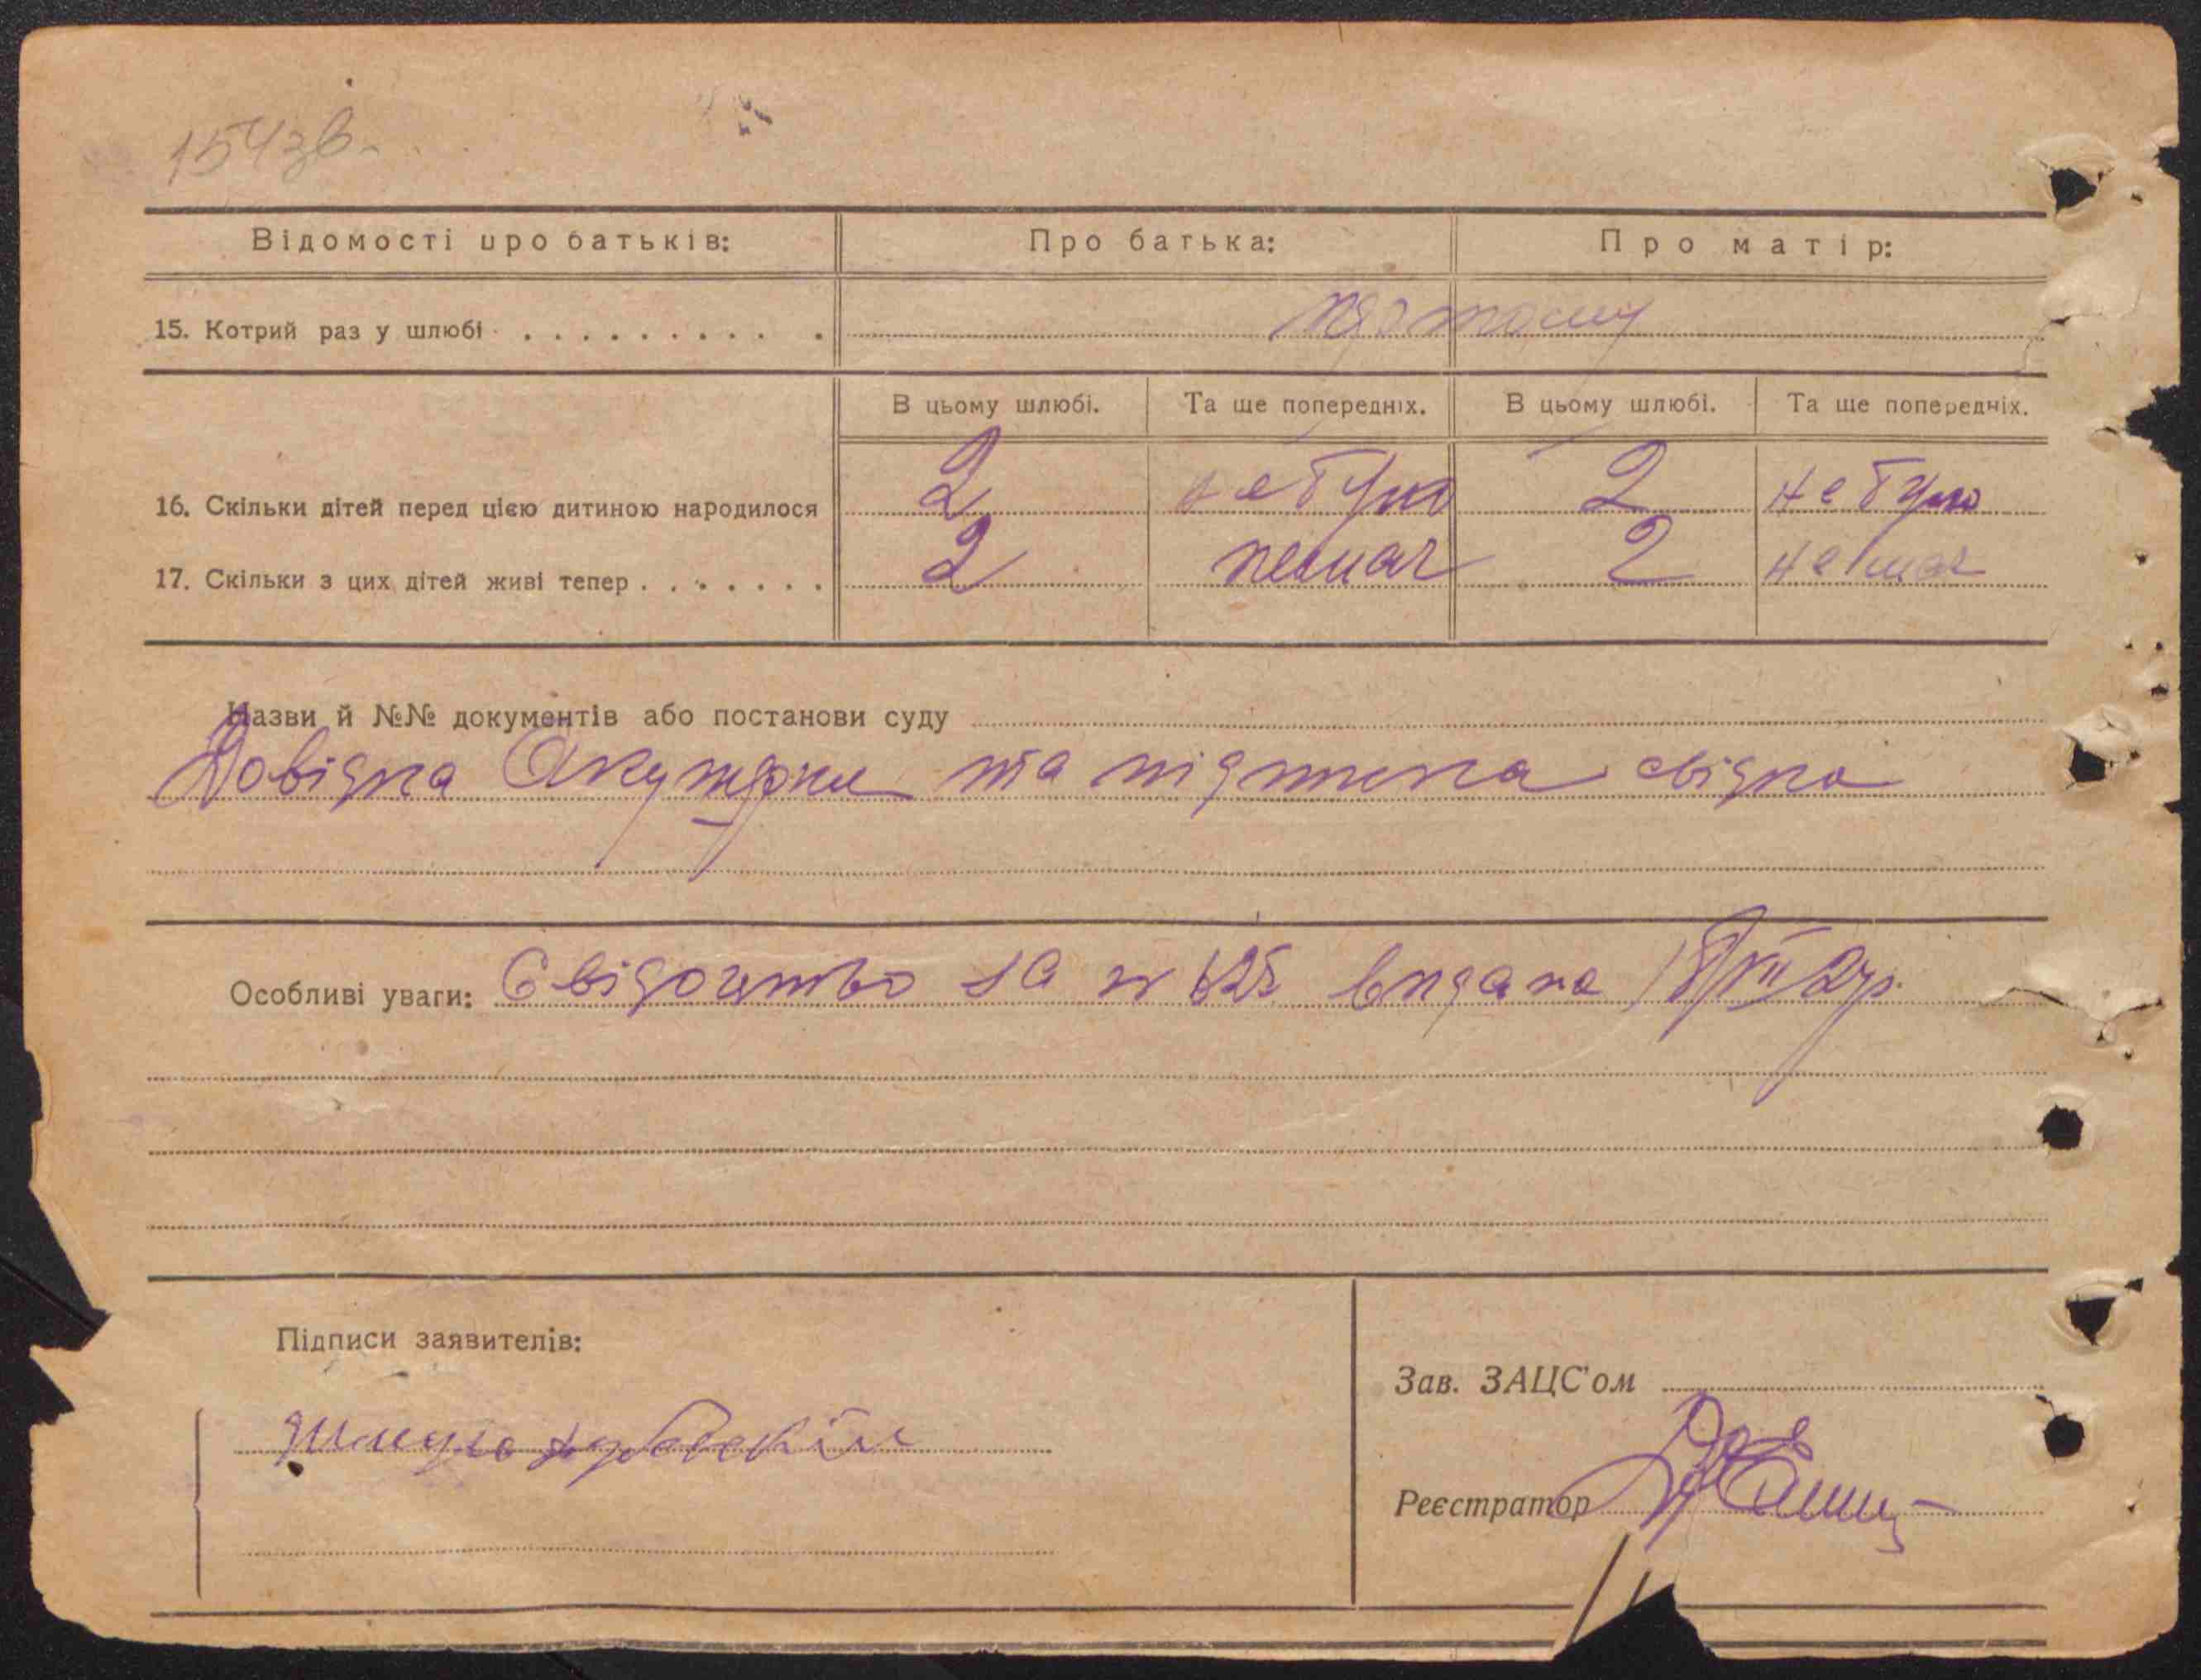 154зв.
Відомості про батьків: Про батька: Про матір:
15. Котрий раз у шлюбі
В цьому шлюбі. Та ще попередніх. В цьому шлюбі. Та ще попередніх.
16. Скільки дітей перед цією дитиною народилося 2 не було 2 не було
17. Скільки з цих дітей живі тепер 2 немає 2 немає
Назви й №№ документів або постанови суду
Довідка Акушерки та підписка свідка
Особливі уваги: Свідоцтво за № 625 видана 18/VII 27р.
Підписи заявителів:
Зав. ЗАЦС'ом
Шмуль
Реєстратор